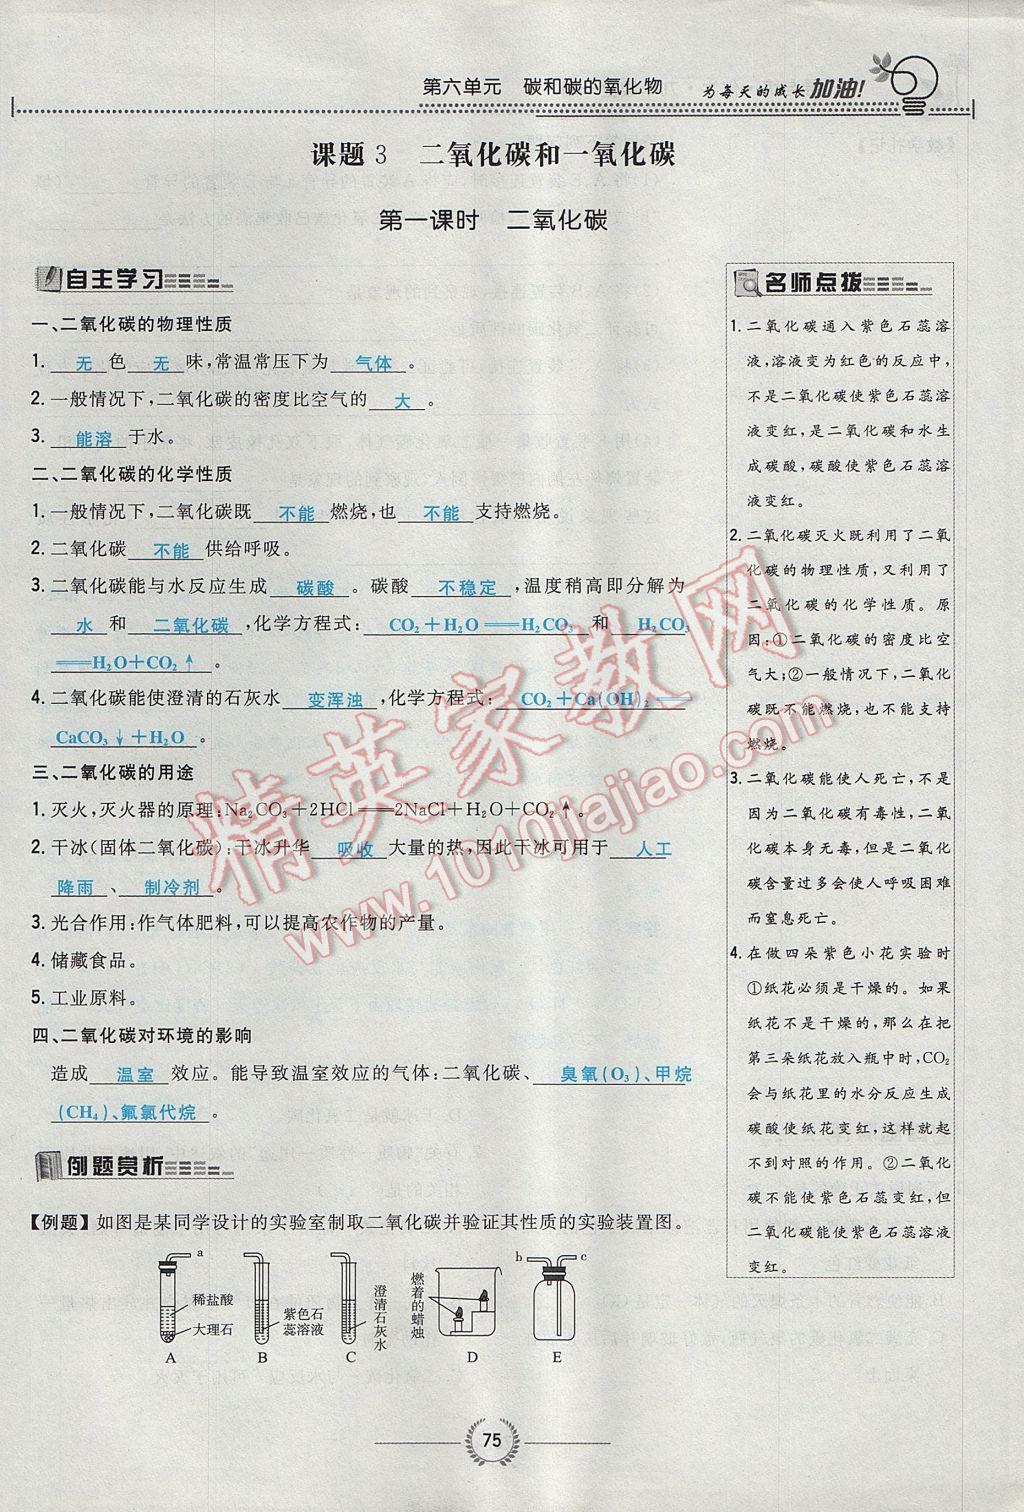 第六单元　碳和碳的氧化物
为每天的成长加油!
课题3　二氧化碳和一氧化碳
第一课时　二氧化碳
自主学习
一、二氧化碳的物理性质
1. 无 色 无 味,常温常压下为 气体 。
2. 一般情况下,二氧化碳的密度比空气的 大 。
3. 能溶 于水。
二、二氧化碳的化学性质
1. 一般情况下,二氧化碳既 不能 燃烧,也 不能 支持燃烧。
2. 二氧化碳 不能 供给呼吸。
3. 二氧化碳能与水反应生成 碳酸 。碳酸 不稳定 ,温度稍高即分解为
水 和 二氧化碳 ,化学方程式: CO₂＋H₂O══H₂CO₃ 和 H₂CO₃
══H₂O＋CO₂↑ 。
4. 二氧化碳能使澄清的石灰水 变浑浊 ,化学方程式: CO₂＋Ca(OH)₂══
CaCO₃↓＋H₂O 。
三、二氧化碳的用途
1. 灭火,灭火器的原理:Na₂CO₃＋2HCl══2NaCl＋H₂O＋CO₂↑。
2. 干冰(固体二氧化碳):干冰升华 吸收 大量的热,因此干冰可用于 人工
降雨 、 制冷剂 。
3. 光合作用:作气体肥料,可以提高农作物的产量。
4. 储藏食品。
5. 工业原料。
四、二氧化碳对环境的影响
造成 温室 效应。能导致温室效应的气体:二氧化碳、 臭氧(O₃)、甲烷
(CH₄)、氟氯代烷 。
例题赏析
【例题】如图是某同学设计的实验室制取二氧化碳并验证其性质的实验装置图。
a
稀盐酸
大理石
A
紫色石
蕊溶液
B
澄清石灰水
C
燃着的蜡烛
D
b
c
E
名师点拨
1. 二氧化碳通入紫色石蕊溶
液,溶液变为红色的反应中,
不是二氧化碳使紫色石蕊溶
液变红,是二氧化碳和水生
成碳酸,碳酸使紫色石蕊溶
液变红。
2. 二氧化碳灭火既利用了二氧
化碳的物理性质,又利用了
二氧化碳的化学性质。原
因:①二氧化碳的密度比空
气大;②一般情况下,二氧化
碳既不能燃烧,也不能支持
燃烧。
3. 二氧化碳能使人死亡,不是
因为二氧化碳有毒性,二氧
化碳本身无毒,但是二氧化
碳含量过多会使人呼吸困难
而窒息死亡。
4. 在做四朵紫色小花实验时
①纸花必须是干燥的。如果
纸花不是干燥的,那么在把
第三朵纸花放入瓶中时,CO₂
会与纸花里的水分反应生成
碳酸使纸花变红,这样就起
不到对照的作用。②二氧化
碳不能使紫色石蕊变红,但
二氧化碳能使紫色石蕊溶液
变红。
精英家教网
www.1010jiajiao.com
75